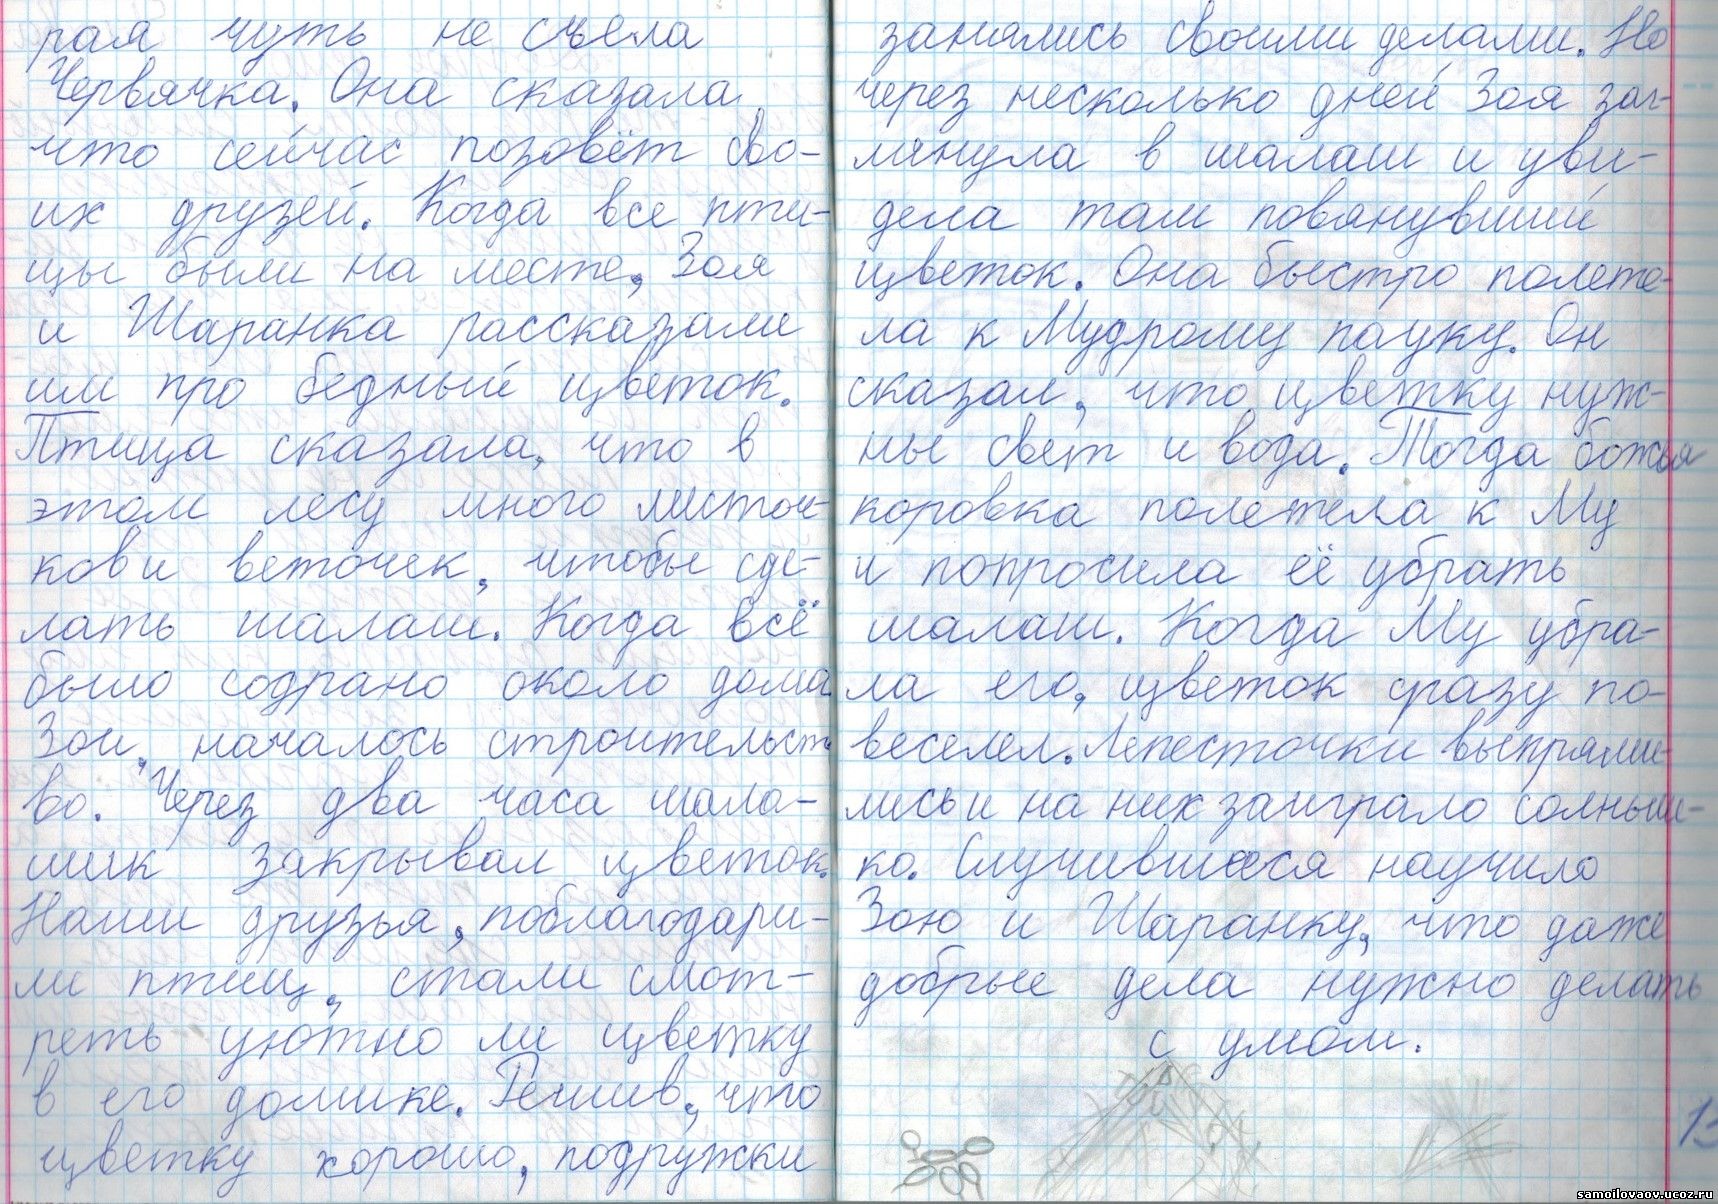 рая чуть не съела
Червячка. Она сказала,
что сейчас позовёт сво-
их друзей. Когда все пти-
цы были на месте, Зоя
и Шаранка рассказали
им про бедный цветок.
Птица сказала, что в
этом лесу много листоч-
ков и веточек, чтобы сде-
лать шалаш. Когда всё
было содрано около дома
Зои, началось строительст
во. Через два часа шала-
шик закрывал цветок.
Наши друзья, поблагодари-
ли птиц, стали смот-
реть уютно ли цветку
в его домике. Решив, что
цветку хорошо, подружки
занялись своими делами. Но
через несколько дней Зоя заг-
лянула в шалаш и уви-
дела там повянувший
цветок. Она быстро полете-
ла к Мудрому пауку. Он
сказал, что цветку нуж-
ны свет и вода. Тогда божья
коровка полетела к Му
и попросила её убрать
шалаш. Когда Му убра-
ла его, цветок сразу по-
веселел. Лепесточки выпрями-
лись и на них заиграло солныш-
ко. Случившееся научило
Зою и Шаранку, что даже
добрые дела нужно делать
с умом.
samoilovaov.ucoz.ru